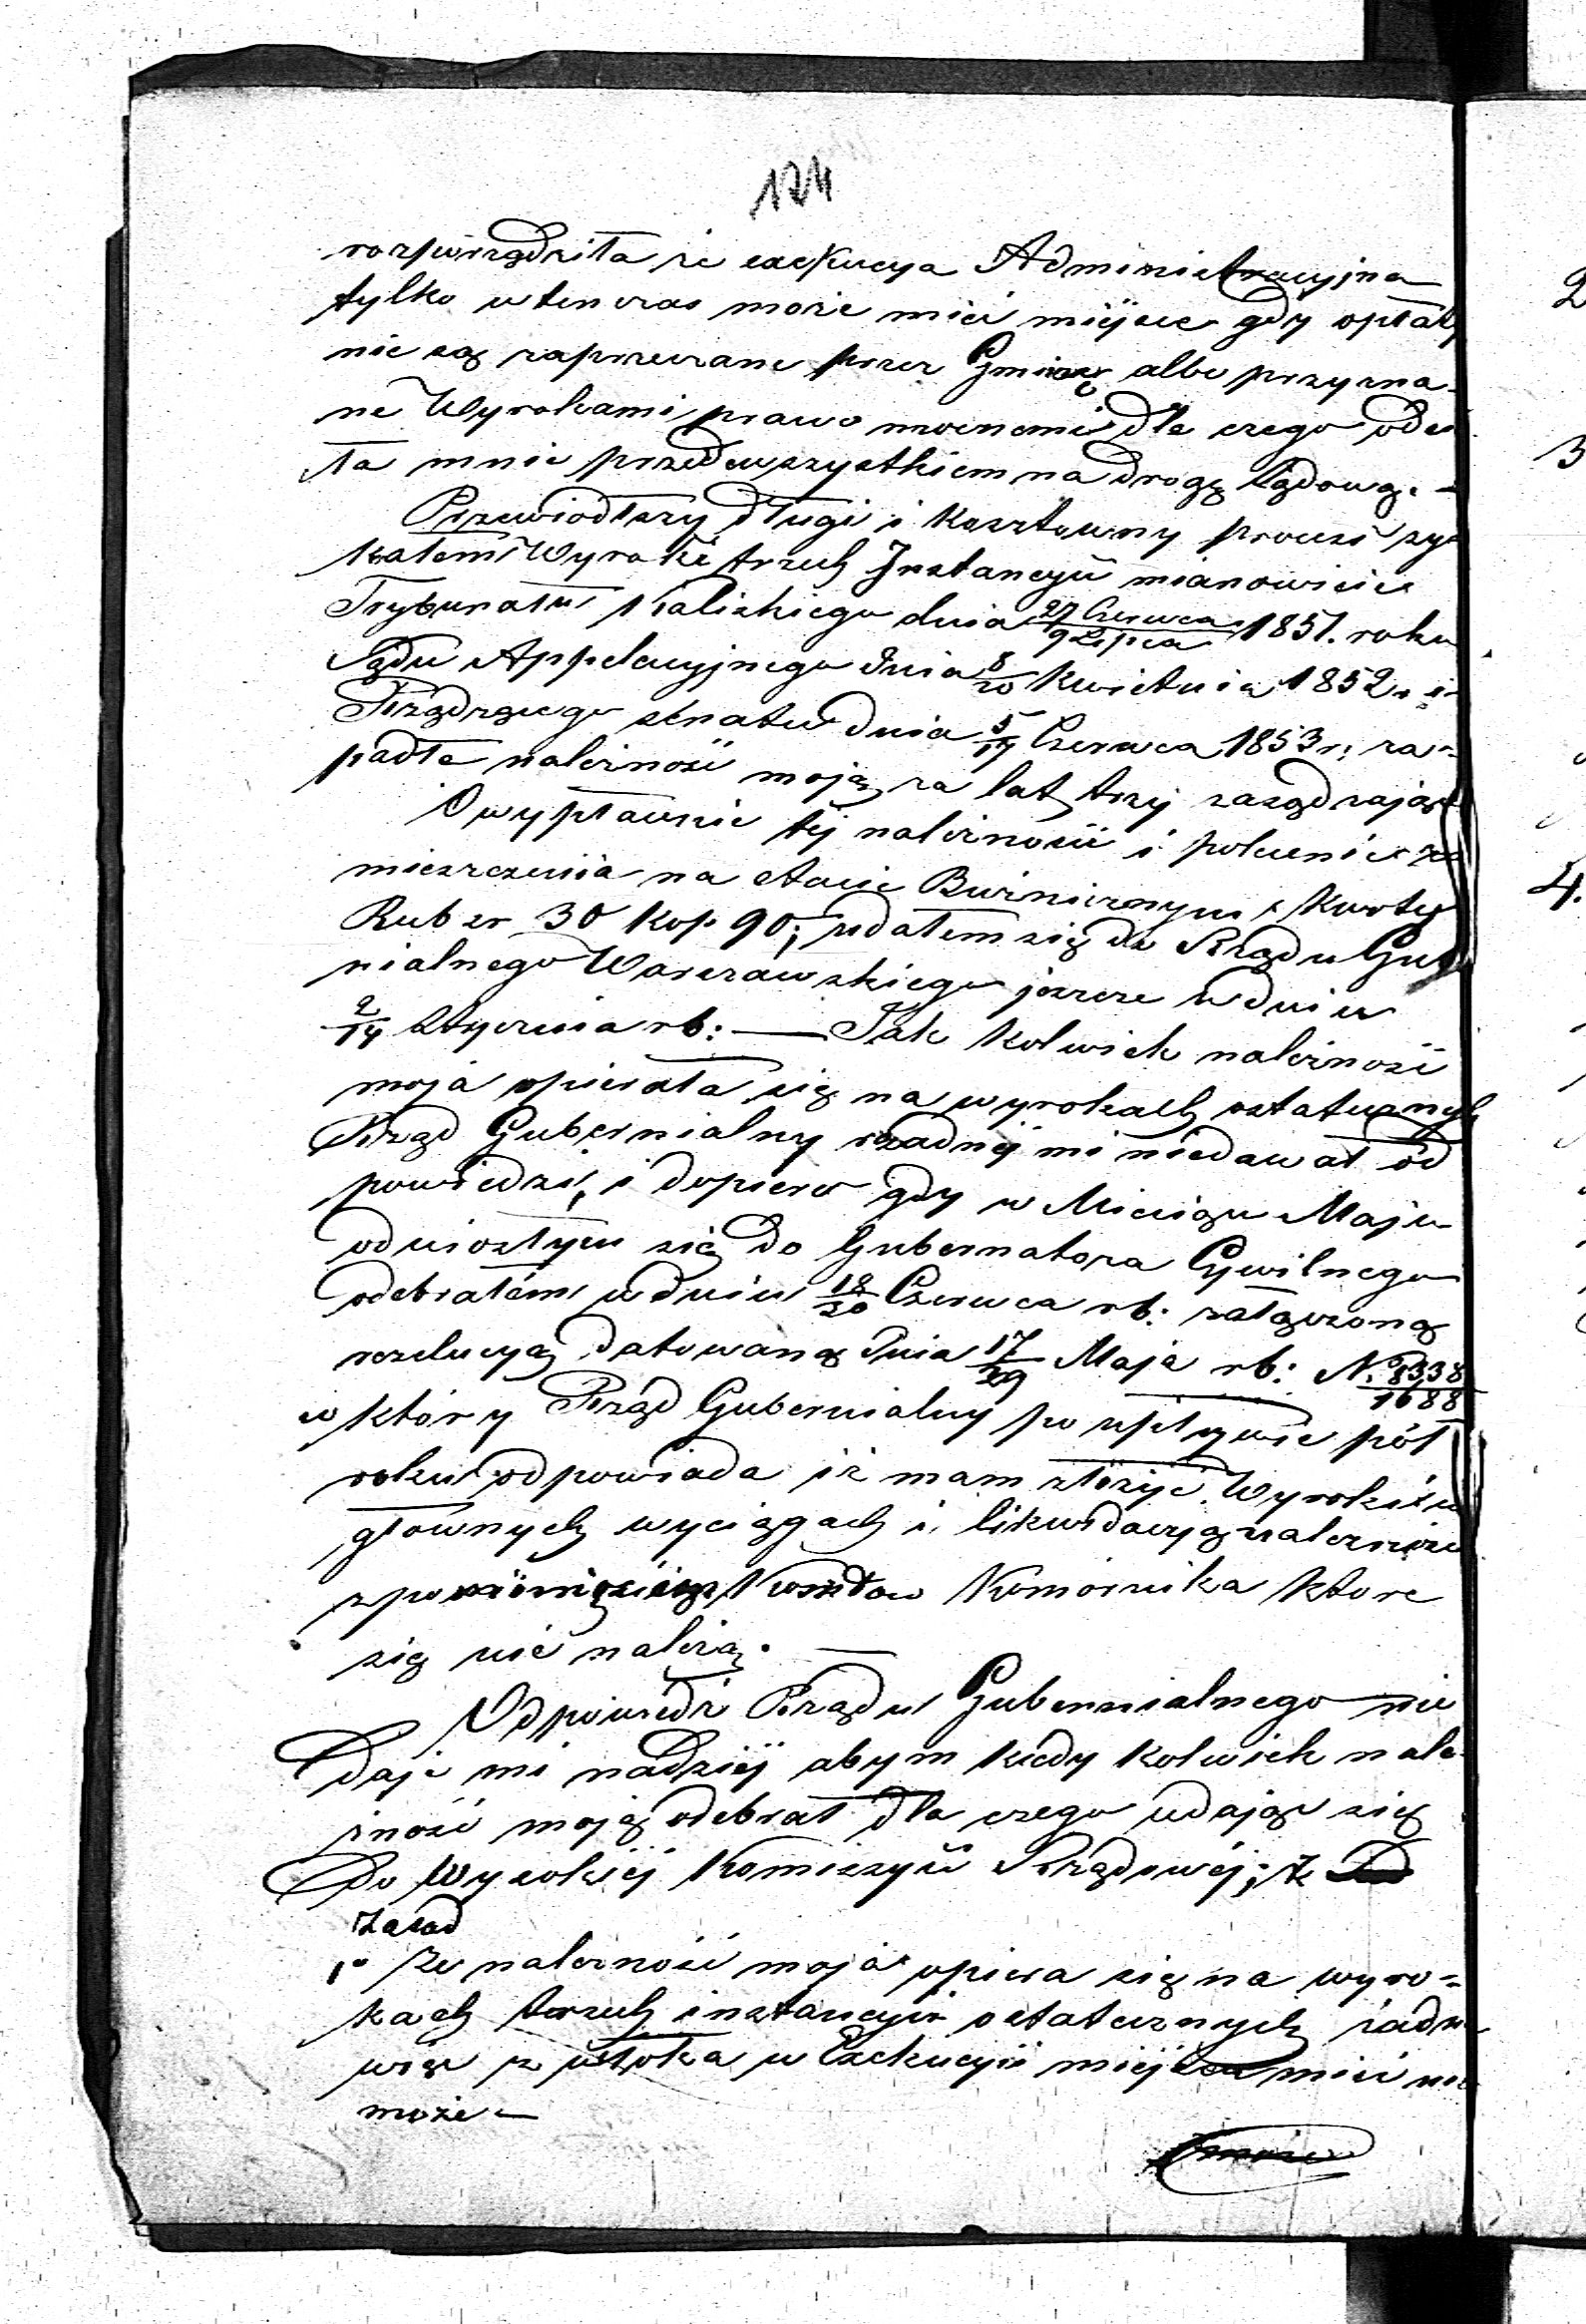 174
rozporządziła że exekucya Administracyjna
tylko wtenczas może mieć miejsce gdy opłaty
nie są zaprzeczane przez Gminę albo przyzna-
ne Wyrokami prawo mocnemi dla czego odes
ła mnie przedewszystkiem na drogę Sądową. –
Przewiodłszy długi i kosztowny proces zys
kałem Wyroki trzech Instancyii mianowicie
Trybunału Kaliskiego dnia 27 Czerwca / 9 Lipca 1851. roku
Sądu Appelacyjnego dnia 8/20 Kwietnia 1852 r. i
Rządzącego Senatu dnia 5/17 Czerwca 1853 r. za-
padłe należność moją za lat trzy zasądzające
O wypłacenie téj należności i polecenie za
mieszczenia na etacie Bużnicznym kwoty
Rub sr 30 kop 90; udałem się do Rządu Gube
nialnego Warszawskiego jeszcze w dniu
2/14 Stycznia rb: — Jak kolwiek należność
moja opierała się na wyrokach ostatecznych
Rząd Gubernialny żadnéj mi niedawał od
powiedzi, i dopiero gdy w Miesiącu Maju
odniosłym się do Gubernatora Cywilnego
odebrałém w dniu 18/30 Czerwca rb: załączoną
rezolucyą datowaną dnia 17/29 Maja rb: N. 8338/1688
w któréy Rząd Gubernialny po upływie pół
roku odpowiada iż mam złożyć Wyroki w
głownych wyciągach i likwidacyą należności
z pominięciem Kosztow Komornika ktore
się nie należą. —
Odpowiedź Rządu Gubernialnego nie
daje mi nadziéj abym kiedy kolwiek nale-
żność moją odebrał dla czego udając się
Do Wysokiéj Komissyii Rządowéj; z
Zasad
1° Że należność moja opiera się na wyro-
kach trzech instancyii ostatecznych żadna
więc zwłoka w Exekucyii miejsca mieć nie
może –
2
3
4.